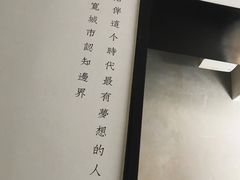 伴這个時代最有夢想的人
寬城市認知邊界